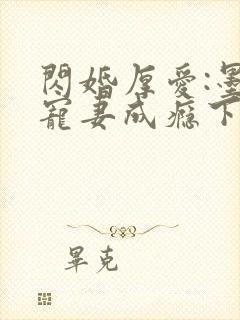 閃婚厚愛:墨
寵妻成癮下
畢克